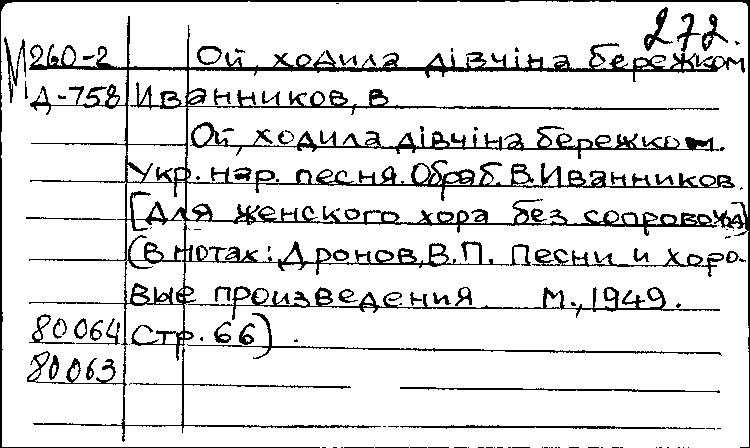 272.
М260-2 Ой, ходила дівчіна бережком
Д-758 Иванников, В
Ой, ходила дівчіна бережком.
Укр. нар. песня. Обраб. В. Иванников.
[Для женского хора без сопровожд]
(В нотах: Дронов, В.П. Песни и хоро-
вые произведения М., 1949.
80064 Стр. 66).
80063